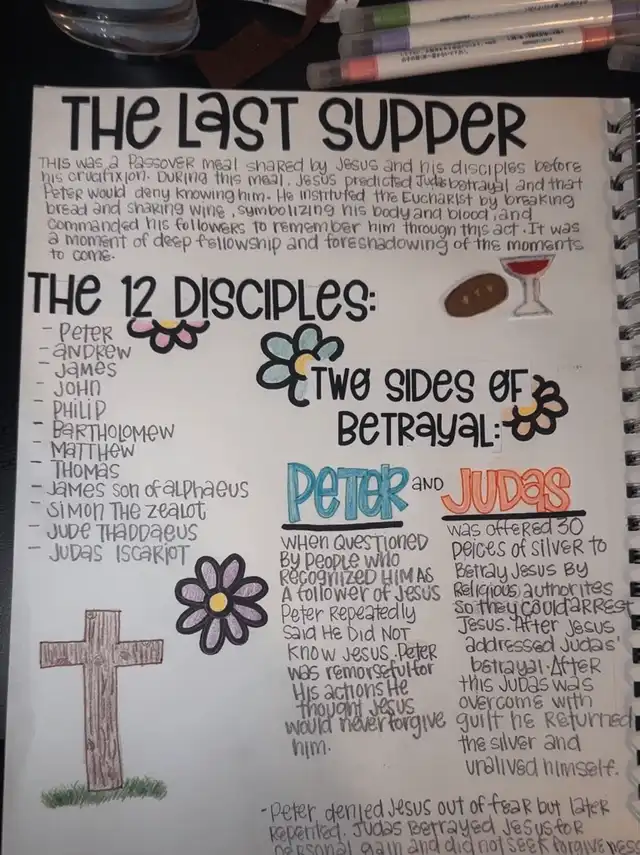 THE LAST SUPPER
THIS WAS A PASSOVER MEAL SHARED BY JESUS AND HIS DISCIPLES BEFORE
HIS CRUCIFIXION. DURING THIS MEAL, JESUS PREDICTED JUDAS BETRAYAL AND THAT
PETER WOULD DENY KNOWING HIM. HE INSTITUTED THE EUCHARIST BY BREAKING
BREAD AND SHARING WINE, SYMBOLIZING HIS BODY AND BLOOD, AND
COMMANDED HIS FOLLOWERS TO REMEMBER HIM THROUGH THIS ACT. IT WAS
A MOMENT OF DEEP FELLOWSHIP AND FORESHADOWING OF THE MOMENTS
TO COME.
THE 12 DISCIPLES:
- PETER
- ANDREW
- JAMES
- JOHN
- PHILIP
- BARTHOLOMEW
- MATTHEW
- THOMAS
- JAMES SON OF ALPHAEUS
- SIMON THE ZEALOT
- JUDE THADDAEUS
- JUDAS ISCARIOT
TWO SIDES OF
BETRAYAL:
PETER AND JUDAS
WHEN QUESTIONED
BY PEOPLE WHO
RECOGNIZED HIM AS
A FOLLOWER OF JESUS
PETER REPEATEDLY
SAID HE DID NOT
KNOW JESUS. PETER
WAS REMORSEFUL FOR
HIS ACTIONS HE
THOUGHT JESUS
WOULD NEVER FORGIVE
HIM.
WAS OFFERED 30
PEICES OF SILVER TO
BETRAY JESUS BY
RELIGIOUS AUTHORITES
SO THEY COULD ARREST
JESUS. AFTER JESUS
ADDRESSED JUDAS'
BETRAYAL. AFTER
THIS JUDAS WAS
OVERCOME WITH
GUILT HE RETURNED
THE SILVER AND
UNALIVED HIMSELF.
- PETER DENIED JESUS OUT OF FEAR BUT LATER
REPENTED. JUDAS BETRAYED JESUS FOR
PERSONAL GAIN AND DID NOT SEEK FORGIVENESS